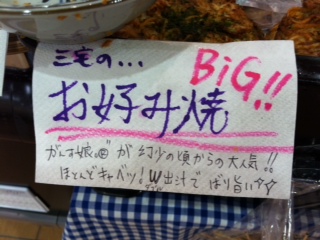 三宅の...
BiG!!
お好み焼
がんす娘。が幻少の頃からの大人気!!
ほとんどキャベツ!W出汁でばり旨い☆☆